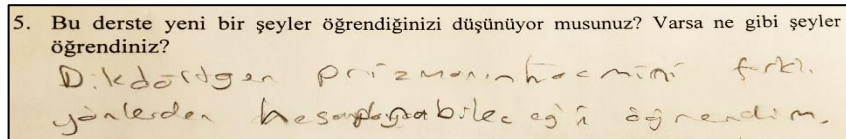 5. Bu derste yeni bir şeyler öğrendiğinizi düşünüyor musunuz? Varsa ne gibi şeyler
öğrendiniz?
Dikdörtgen prizmanın hacmini frklı
yönlerden hesaplayabileceği öğrendim.